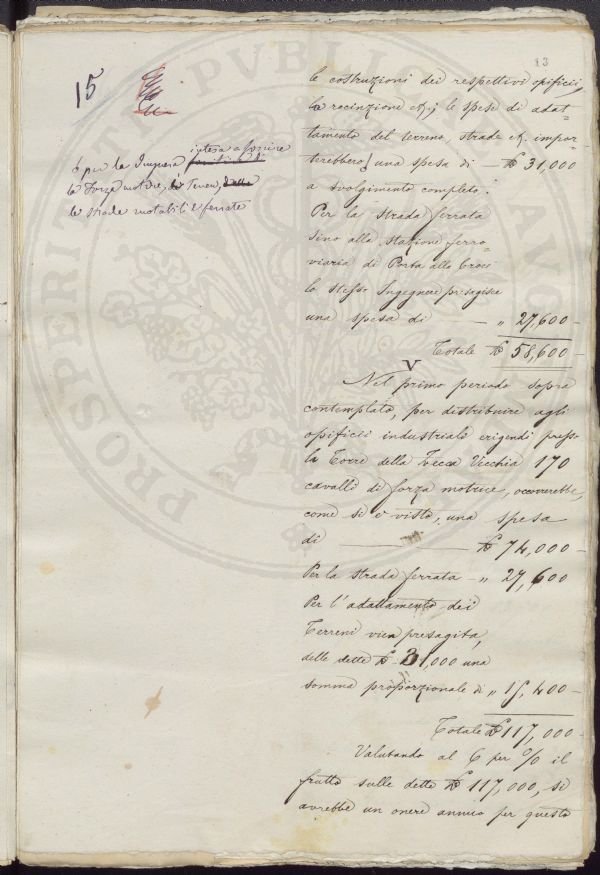 13
15
o per la Impresa intesa a fornire
la Forza motrice, i Terreni,
le strade rotabili e ferrate
le costruzioni dei respettivi opificii,
la recinzione &; le spese di adat-
tamento del terreno, strade &. impor-
terebbero una spesa di — £ 31,000
a svolgimento completo.
Per la strada ferrata
sino alla stazione ferro-
viaria di Porta alla Croce
lo stesso Ingegnere presagisce
una spesa di — „ 27,600 -
Totale £ 58,600 -
V
Nel primo periodo sopra
contemplato, per distribuire agli
opificii industriali erigendi presso
la Torre della Zecca Vecchia 170
cavalli di forza motrice, occorrerebbe,
come si è visto, una spesa
di — £ 74,000 -
Per la strada ferrata - „ 27,600
Per l'adattamento dei
Terreni vien presagita,
delle dette £ 31,000 una
somma proporzionale di „ 15,400 -
Totale £ 117,000 -
Valutando al 6 per % il
frutto sulle dette £ 117,000, si
avrebbe un onere annuo per questo
PROSPERITATI PVBLICAE AVGENDAE